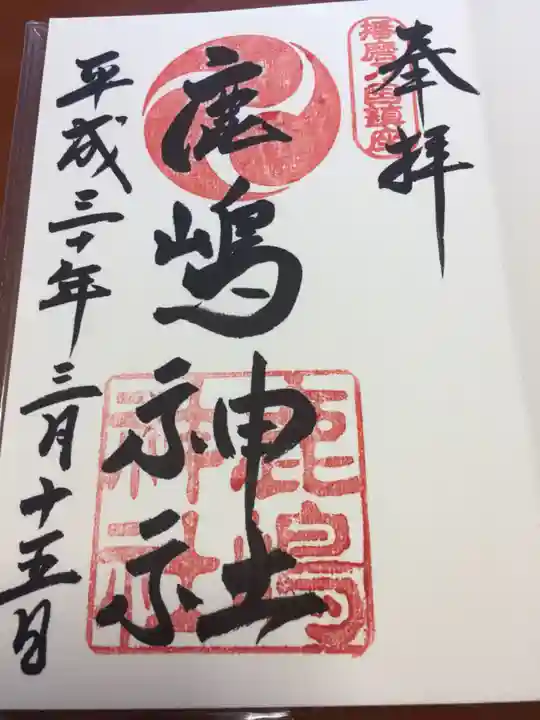 奉拝
播磨
鎮座
鹿嶋神社
鹿嶋
神社
平成三十年三月十五日